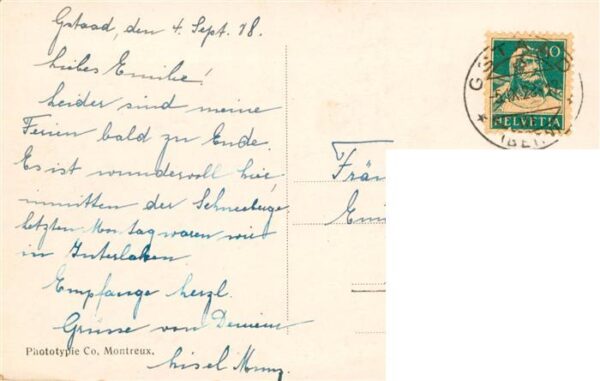 Gstaad, den 4. Sept. 18.
Liebes Emilie!
Leider sind meine
Ferien bald zu Ende.
Es ist wundervoll hier,
inmitten der Schneeberge.
Letzten Montag waren wir
in Interlaken
Empfange herzl.
Grüsse von Deiner
Lisel
Phototypie Co, Montreux.
10
HELVETIA
GSTAAD
(BERN)
Frä
Em